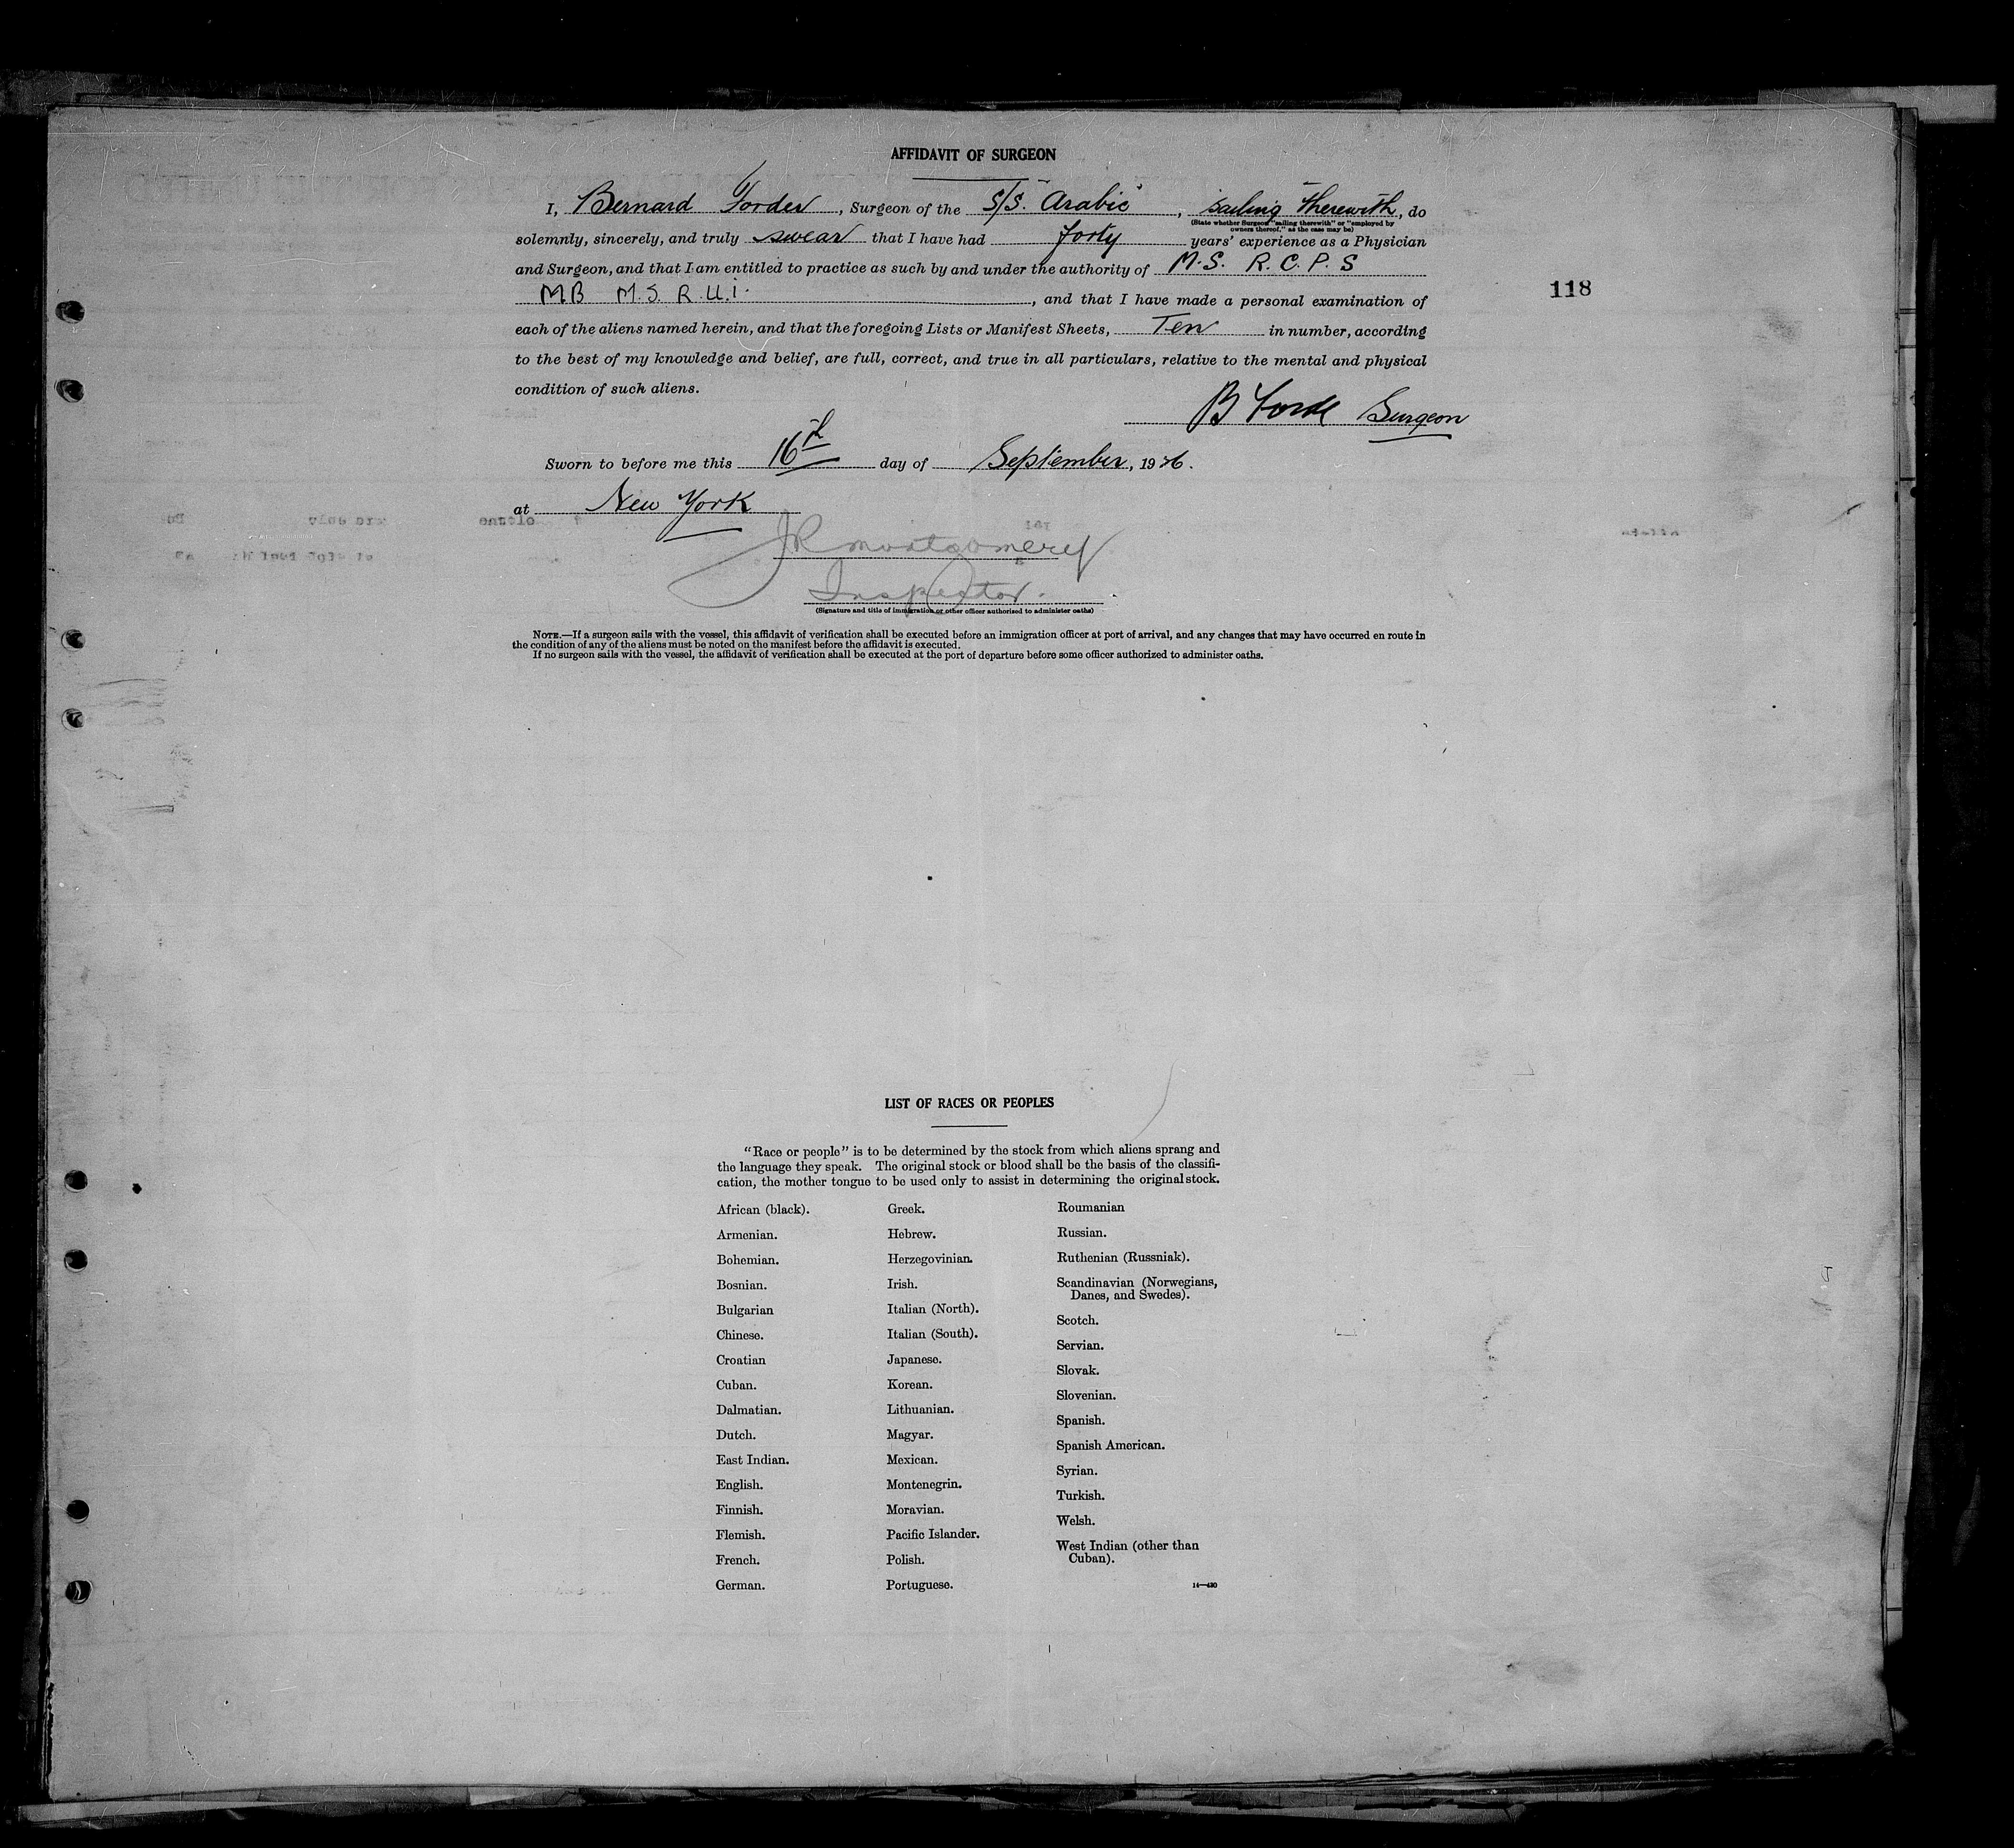 AFFIDAVIT OF SURGEON
I, Bernard Forder, Surgeon of the S/S. "Arabic", sailing therewith, do
(State whether Surgeon "sailing therewith" or "employed by
owners thereof," as the case may be)
solemnly, sincerely, and truly swear that I have had forty years' experience as a Physician
and Surgeon, and that I am entitled to practice as such by and under the authority of M.S. R.C.P.S
MB M.S. R.U.i., and that I have made a personal examination of
118
each of the aliens named herein, and that the foregoing Lists or Manifest Sheets, Ten in number, according
to the best of my knowledge and belief, are full, correct, and true in all particulars, relative to the mental and physical
condition of such aliens.
B Forde Surgeon
Sworn to before me this 16th day of September, 1926.
at New York
JR Montgomery
Inspector.
(Signature and title of immigration or other officer authorized to administer oaths)
NOTE.—If a surgeon sails with the vessel, this affidavit of verification shall be executed before an immigration officer at port of arrival, and any changes that may have occurred en route in
the condition of any of the aliens must be noted on the manifest before the affidavit is executed.
If no surgeon sails with the vessel, the affidavit of verification shall be executed at the port of departure before some officer authorized to administer oaths.
LIST OF RACES OR PEOPLES
"Race or people" is to be determined by the stock from which aliens sprang and
the language they speak. The original stock or blood shall be the basis of the classifi-
cation, the mother tongue to be used only to assist in determining the original stock.
African (black).
Armenian.
Bohemian.
Bosnian.
Bulgarian
Chinese.
Croatian
Cuban.
Dalmatian.
Dutch.
East Indian.
English.
Finnish.
Flemish.
French.
German.
Greek.
Hebrew.
Herzegovinian.
Irish.
Italian (North).
Italian (South).
Japanese.
Korean.
Lithuanian.
Magyar.
Mexican.
Montenegrin.
Moravian.
Pacific Islander.
Polish.
Portuguese.
Roumanian
Russian.
Ruthenian (Russniak).
Scandinavian (Norwegians,
Danes, and Swedes).
Scotch.
Servian.
Slovak.
Slovenian.
Spanish.
Spanish American.
Syrian.
Turkish.
Welsh.
West Indian (other than
Cuban).
14—430